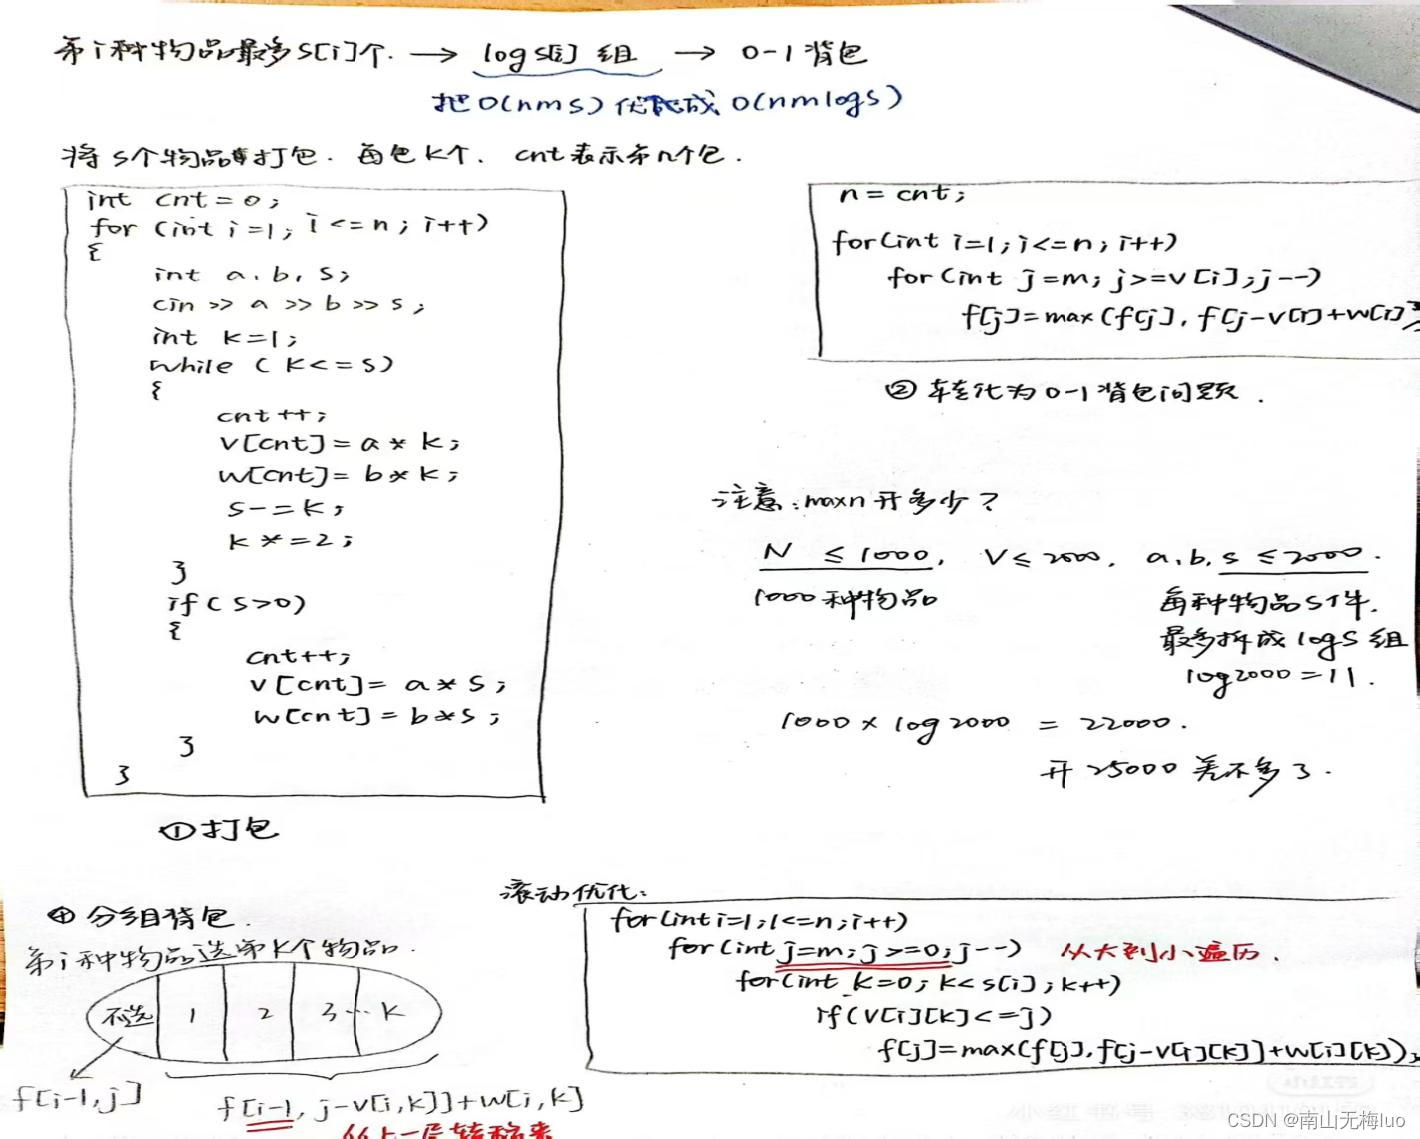 第i种物品最多s[i]个. → log s[i] 组 → 0-1背包
把O(nms)优化成O(nmlogs)
将s个物品打包. 每包k个. cnt表示第n个包.
int cnt=0;
for (int i=1; i<=n; i++)
{
int a, b, s;
cin >> a >> b >> s;
int k=1;
while (k<=s)
{
cnt++;
v[cnt]=a*k;
w[cnt]=b*k;
s-=k;
k*=2;
}
if(s>0)
{
cnt++;
v[cnt]=a*s;
w[cnt]=b*s;
}
}
①打包
n=cnt;
for(int i=1;i<=n;i++)
for(int j=m;j>=v[i];j--)
f[j]=max(f[j],f[j-v[i]+w[i]);
② 转化为0-1背包问题.
注意:maxn开多少?
N ≤1000, V≤2000, a,b,s≤2000.
1000种物品
每种物品s件.
最多拆成logs组
log2000=11.
1000×log2000 = 22000.
开25000差不多了.
④ 分组背包.
第i种物品选第k个物品.
不选 1 2 3 ... k
f[i-1,j]
f[i-1, j-v[i,k]]+w[i,k]
从上一层转移来
滚动优化:
for(int i=1;i<=n;i++)
for(int j=m;j>=0;j--) 从大到小遍历.
for(int k=0;k<s[i];k++)
if(v[i][k]<=j)
f[j]=max(f[j],f[j-v[i][k]]+w[i][k]);
CSDN @南山无梅luo